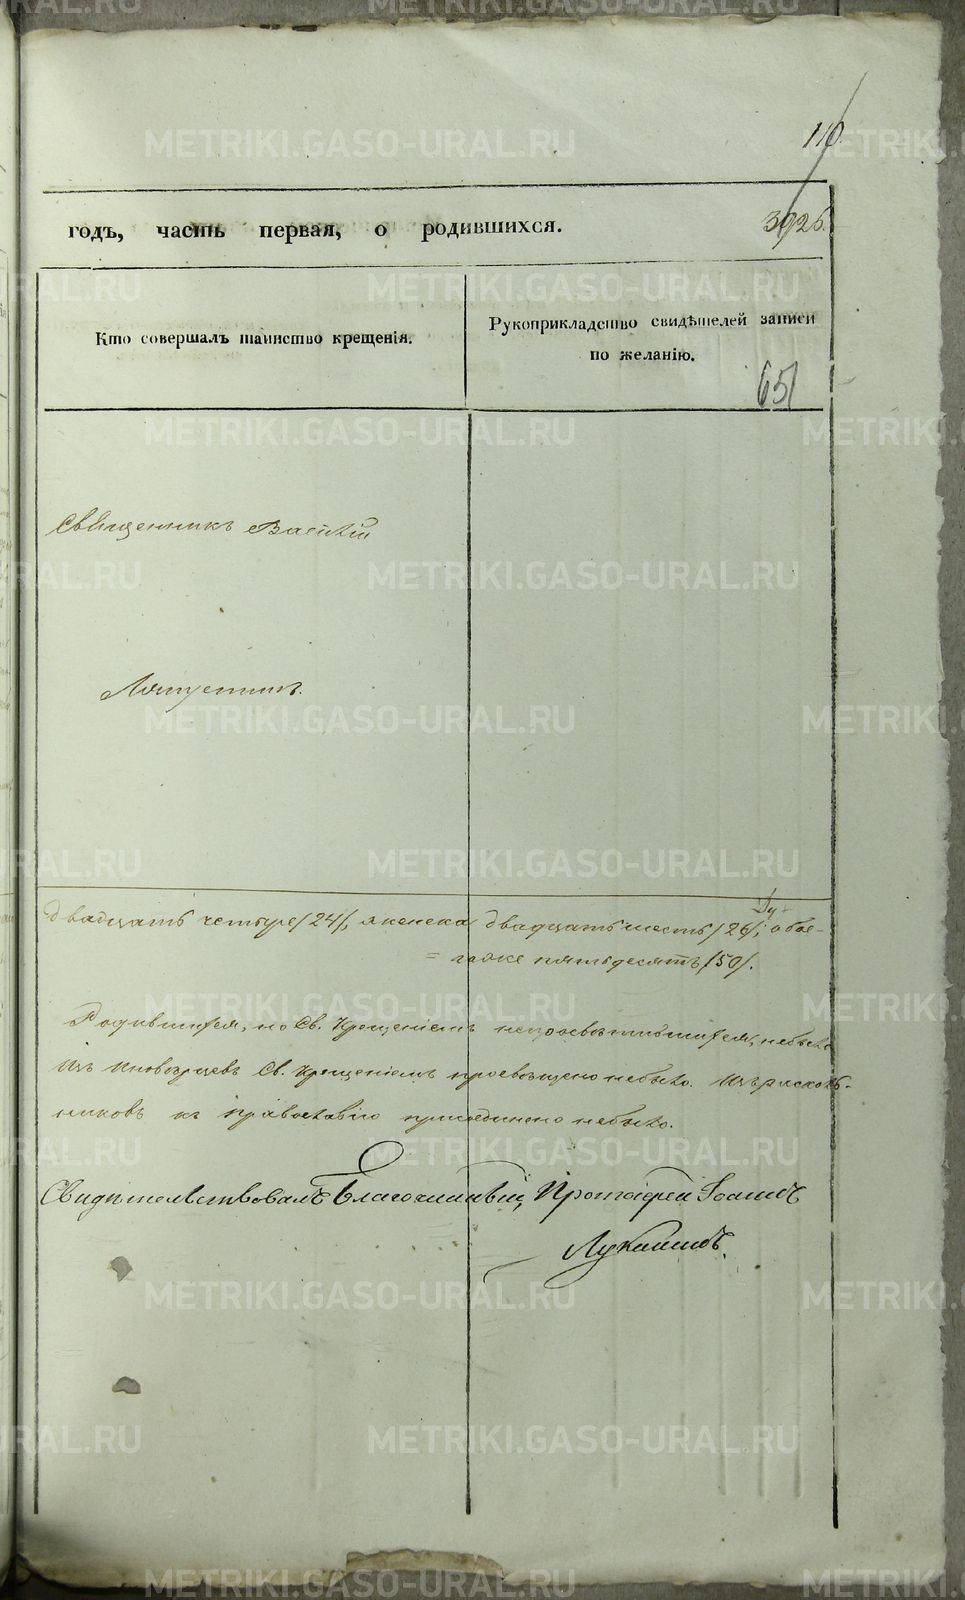 110.
годъ, часть первая, о родившихся.
3926.
Кто совершалъ таинство крещенія.
Рукоприкладство свидѣтелей записи
по желанію.
65
Священникъ Василій
двадцать четыре /24/, а женска двадцать шесть /26/; обое-
= гоже пятьдесятъ /50/.
Родившихся, но Св. Крещеніемъ непросвѣтившихся, небыло
Изъ иновѣрцевъ Св. Крещеніемъ просвѣщено небыло. Изъ расколь-
никовъ къ православію присоединено небыло.
Свидѣтельствовалъ Благочинный, Протоіерей Іоаннъ
Луканинъ.
METRIKI.GASO-URAL.RU